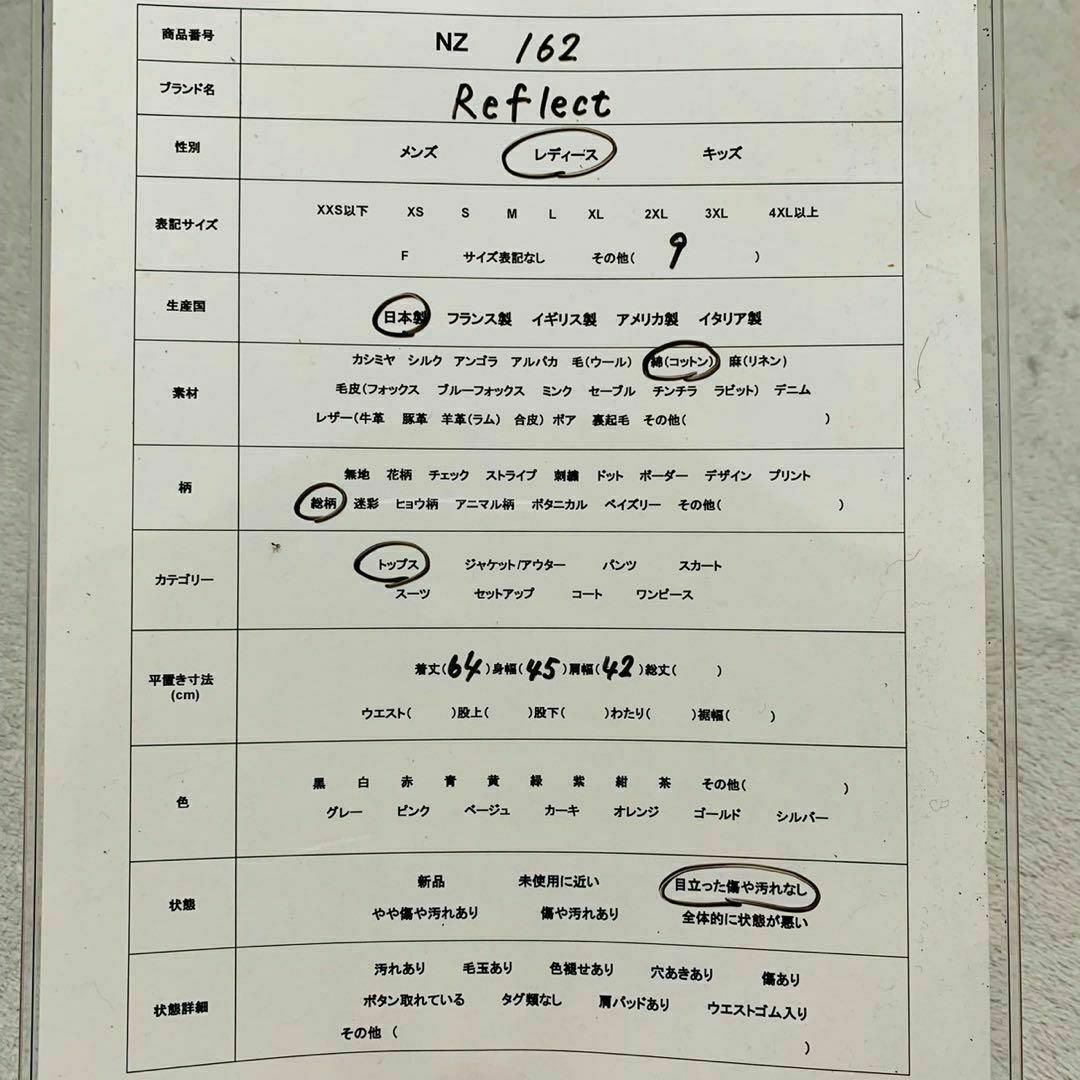 商品番号 NZ 162
ブランド名 Reflect
性別 メンズ レディース キッズ
表記サイズ XXS以下 XS S M L XL 2XL 3XL 4XL以上
F サイズ表記なし その他( 9 )
生産国 日本製 フランス製 イギリス製 アメリカ製 イタリア製
素材 カシミヤ シルク アンゴラ アルパカ 毛(ウール) 綿(コットン) 麻(リネン)
毛皮(フォックス ブルーフォックス ミンク セーブル チンチラ ラビット) デニム
レザー(牛革 豚革 羊革(ラム) 合皮) ボア 裏起毛 その他( )
柄 無地 花柄 チェック ストライプ 刺繍 ドット ボーダー デザイン プリント
総柄 迷彩 ヒョウ柄 アニマル柄 ボタニカル ペイズリー その他( )
カテゴリー トップス ジャケット/アウター パンツ スカート
スーツ セットアップ コート ワンピース
平置き寸法 着丈(64)身幅(45)肩幅(42)総丈( )
(cm) ウエスト( )股上( )股下( )わたり( )裾幅( )
色 黒 白 赤 青 黄 緑 紫 紺 茶 その他( )
グレー ピンク ベージュ カーキ オレンジ ゴールド シルバー
状態 新品 未使用に近い 目立った傷や汚れなし
やや傷や汚れあり 傷や汚れあり 全体的に状態が悪い
状態詳細 汚れあり 毛玉あり 色褪せあり 穴あきあり 傷あり
ボタン取れている タグ類なし 肩パッドあり ウエストゴム入り
その他 ( )